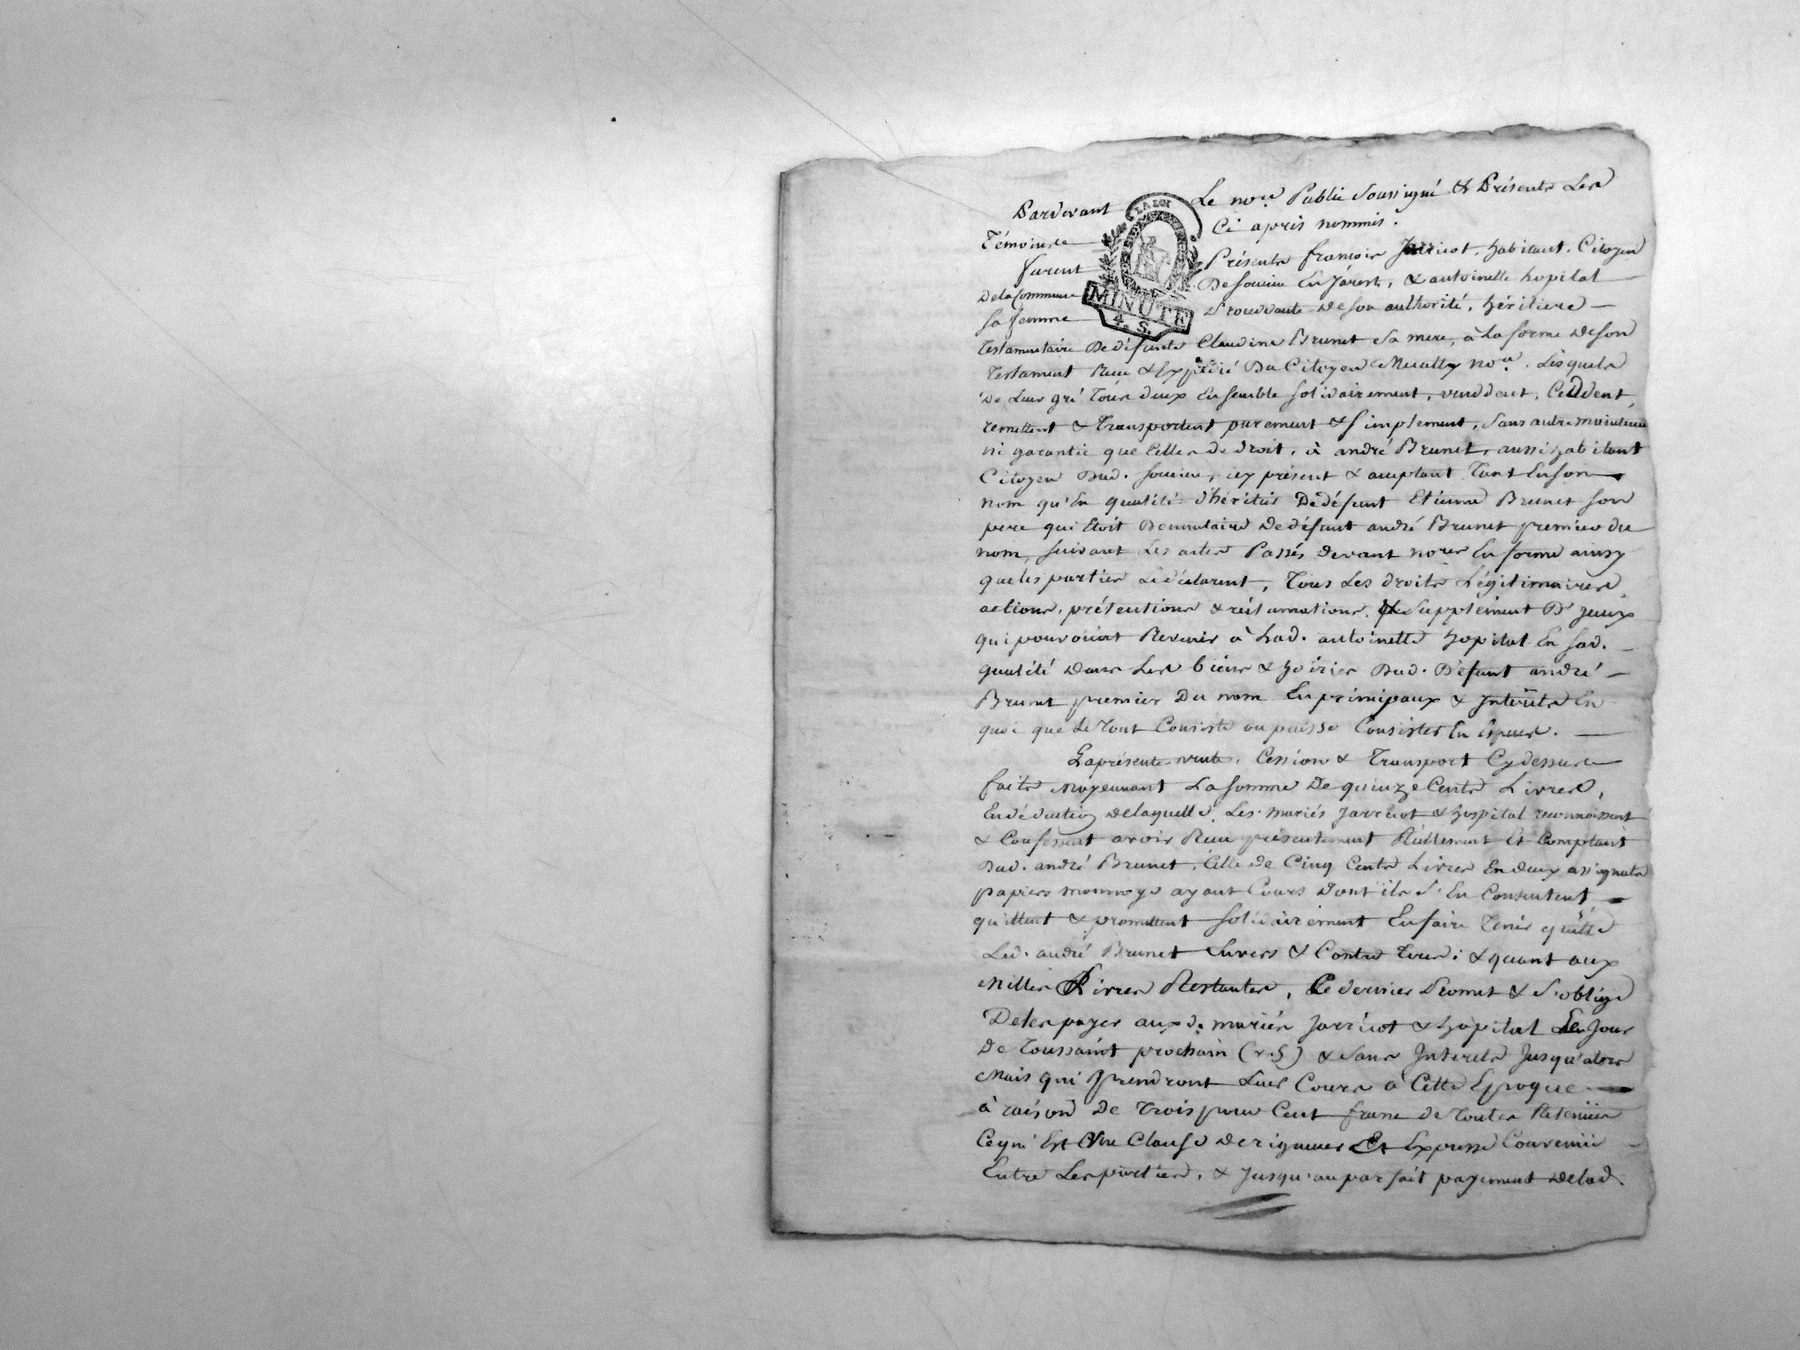 Pardevant Le nore Public soussigné & Présents Les
Témoins Ci après nommés.
furent Présents françois Jarricot, habitant Citoyen
De la Commune De soucieu En Jarest, & antoinette hopital
sa femme De son authorité, héritiere
LA LOI
MINUTE
4. S.
testamentaire De défunte Claudine Brunet sa mere, à La forme De son
Testament Reçu & Expédié Du Citoyen nore. Lesquels
De Leur gré Tous deux Ensemble solidairement, venddent, Ceddent,
remettent & Transportent purement & simplement, sans autre maintenue
ni garantie que Celles de droit, à andré Brunet, aussi habitant
Citoyen Dud. soucieu, icy présent & acceptant Tant En son
nom qu'En qualité d'héritier De défunt Etienne Brunet son
pere qui Etoit De défunt andré Brunet premier du
nom, suivant Les actes Passés devant nores En forme ainsy
que les parties Le déclarent, Tous Les droits Légitimaires
actions, prétentions & réclamations, & supplément D'yceux
qui pouroient Revenir à Lad. antoinette hopital En sad.
qualité dans Les biens & hoiries Dud. Défunt andré
Brunet premier Du nom En principaux & Interêts En
quoi que Le Tout Consiste ou puisse Consister En Espèces.
La présente vente, Cession & Transport Cy dessus
faits moyennant La somme De quinze Cents Livres,
En déduction De laquelle, Les mariés Jarricot & hospital reconnoissent
& Confessent avoir Reçu présentement Réellement Et Comptant
Dud. andré Brunet, Celle de Cinq Cents Livres En deux assignats
papiers monnoye ayant Cours dont ils s'En Contentent
quittent & promettent solidairement En faire Tenir quitte
Led. andré Brunet Envers & Contre Tous; & quant aux
Milles Livres Restantes, Ce dernier Promet & s'oblige
De les payer auxd. mariés Jarricot & hopital Le Jour
De Toussaint prochain (v. S) & sans Interets Jusqu'alors
Mais qui prendront Leur Cours à Cette Epoque
à raison De Trois pour Cent franc de Toutes Retenües
Ce qui Est Une Clause De rigueur Et Expresse Convenüe
Entre Les parties, & Jusqu'au parfait payement De lad.